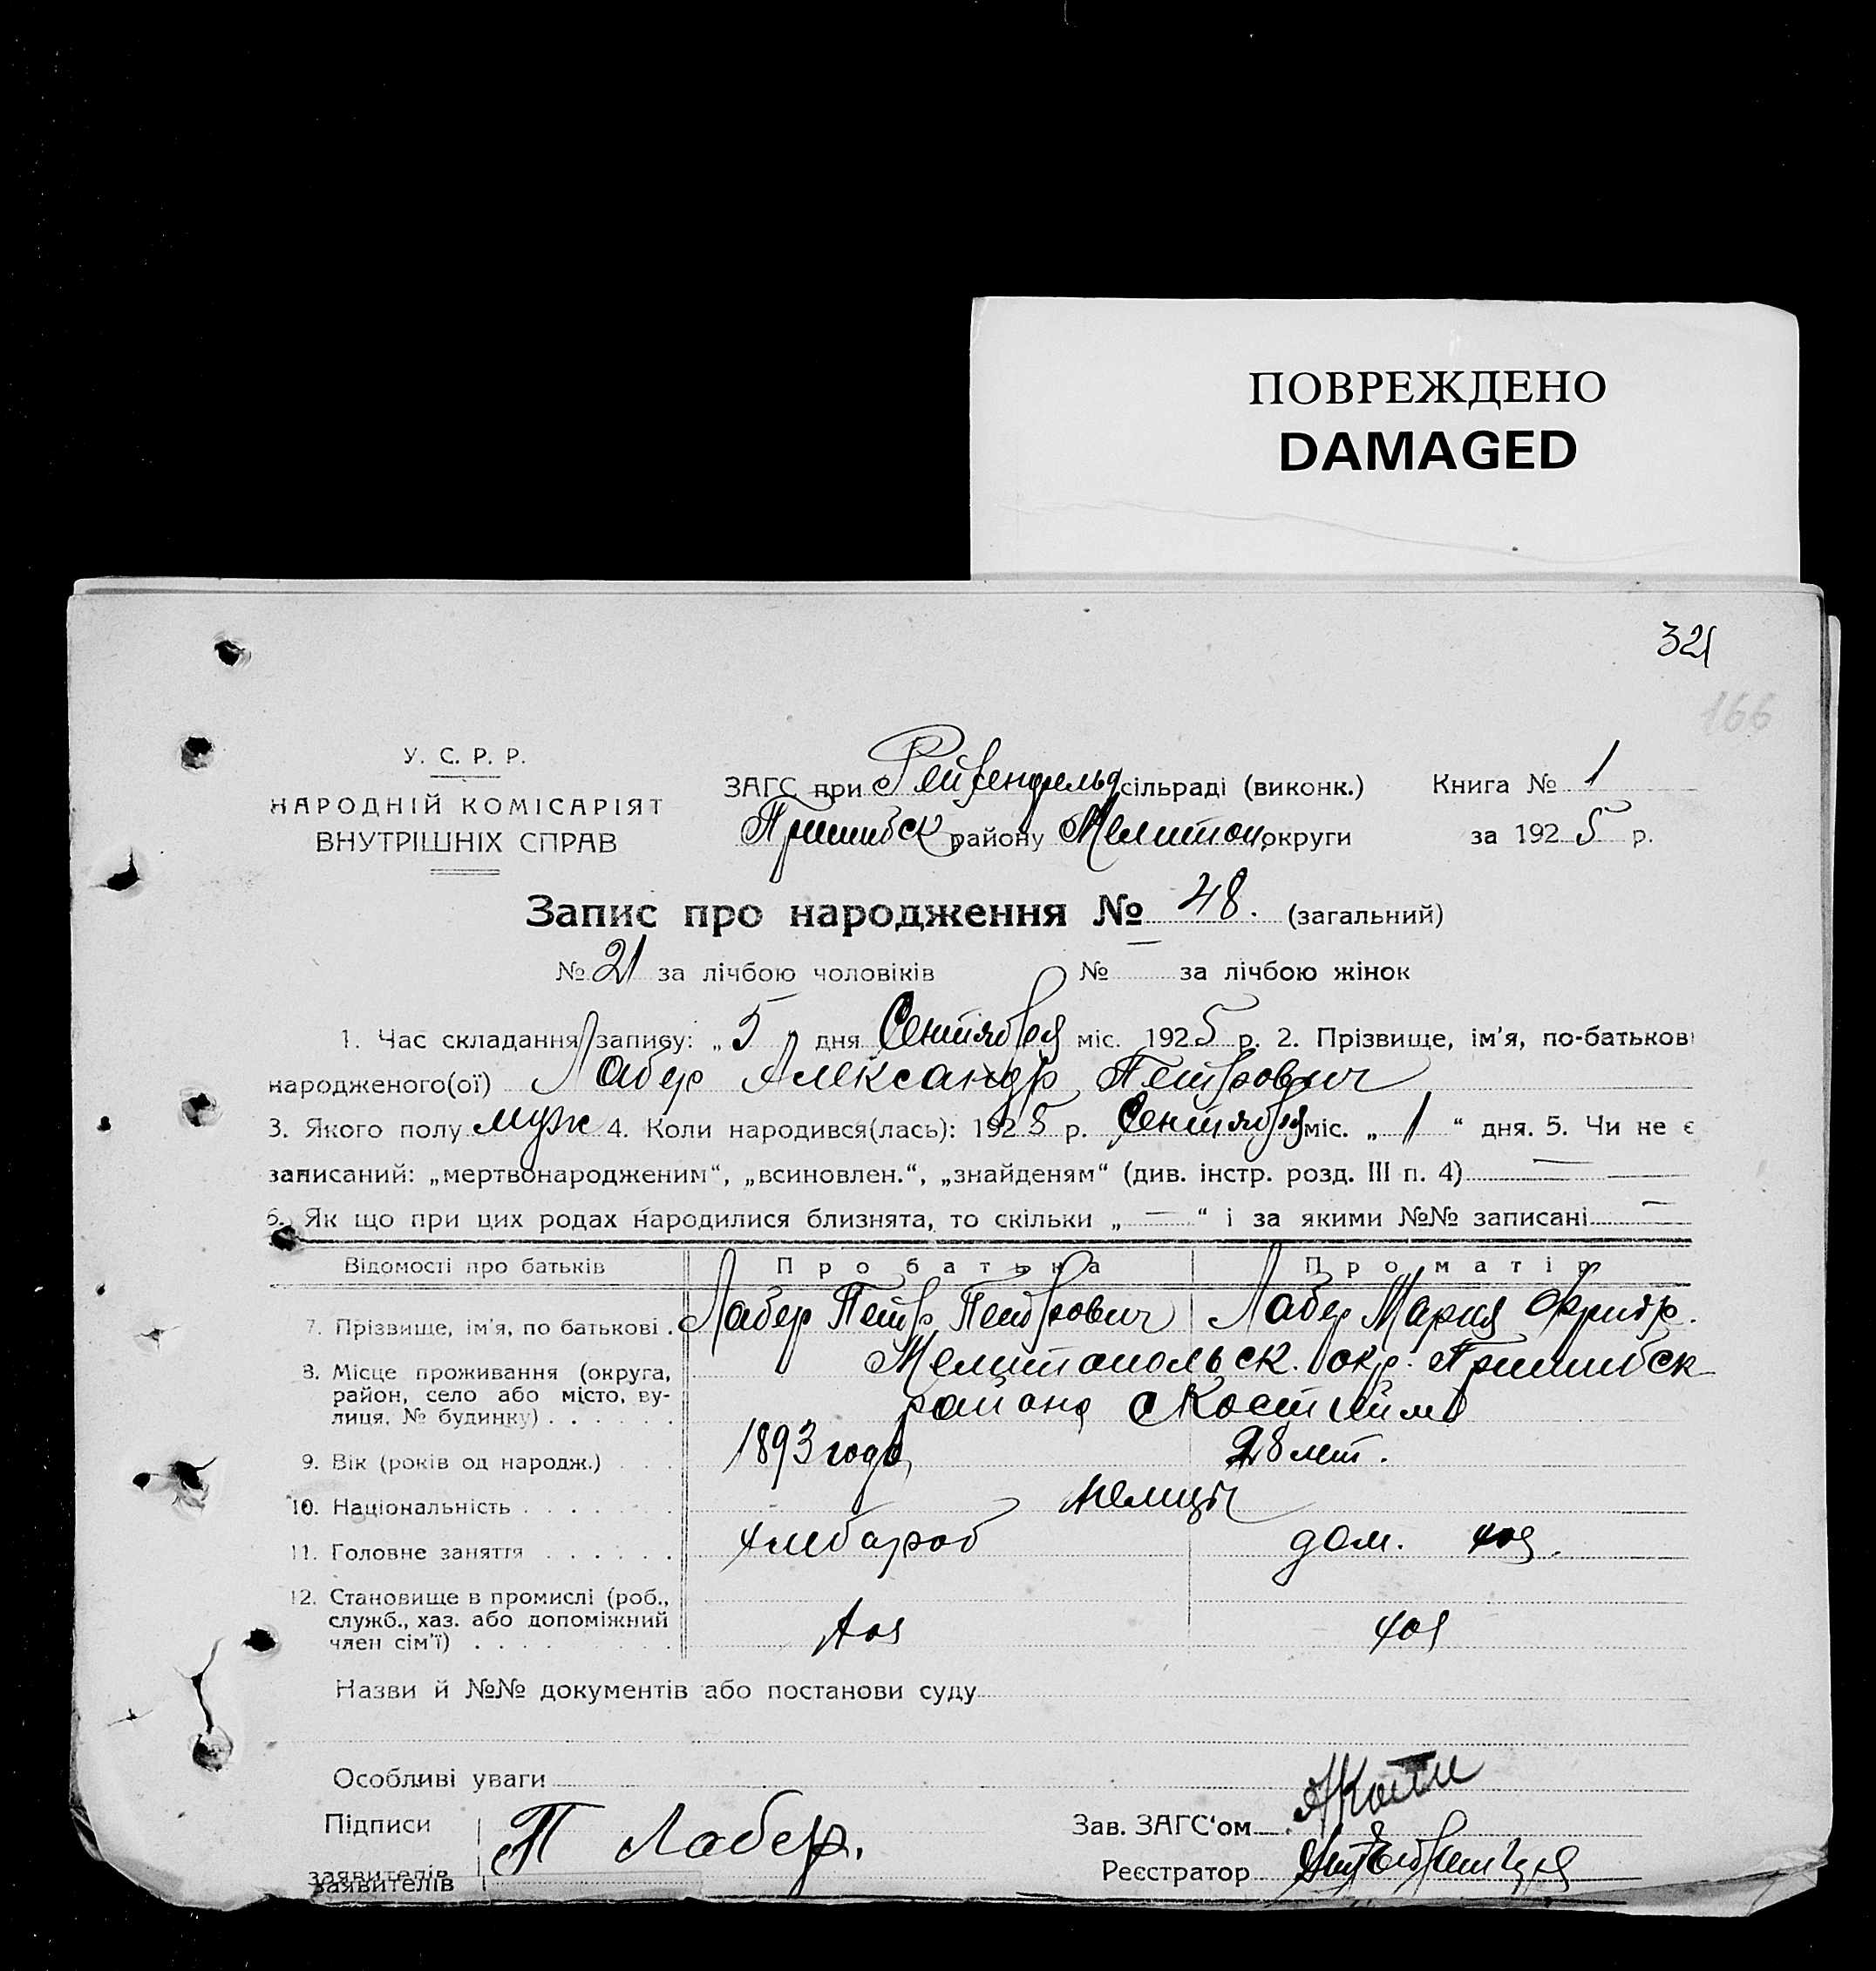 ПОВРЕЖДЕНО
DAMAGED
321
166
У. С. Р. Р.
НАРОДНІЙ КОМІСАРІЯТ
ВНУТРІШНІХ СПРАВ
ЗАГС при Рейхенфельд сільраді (виконк.)
Пришибск району Мелитоп округи
Книга № 1
за 1925 р.
Запис про народження № 48. (загальний)
№ 21 за лічбою чоловіків № за лічбою жінок
1. Час складання запису: „ 5 „ дня Сентября міс. 1925 р. 2. Прізвище, ім'я, по-батькові
народженого(ої) Лабер Александр Петрович
3. Якого полу муж 4. Коли народився(лась): 1925 р. Сентября міс. „ 1 “ дня. 5. Чи не є
записаний: „мертвонародженим“, „всиновлен.“, „знайденям“ (див. інстр. розд. III п. 4) —
6. Як що при цих родах народилися близнята, то скільки „ — “ і за якими №№ записані —
Відомості про батьків Про батька Про матір
7. Прізвище, ім'я, по батькові . Лабер Петр Петрович Лабер Мария Фридр.
8. Місце проживання (округа, Мелитопольск. окр. Пришибск
район, село або місто, ву- района с Костгейм
лиця, № будинку) . . . . . .
9. Вік (років од народж.) . . . 1893 года 28 лет.
10. Національність . . . . . . . немцы
11. Головне заняття . . . . . . хлебароб дом. хоз.
12. Становище в промислі (роб.,
служб., хаз. або допоміжний
член сім'ї) . . . . . . . . хоз хоз
Назви й №№ документів або постанови суду
Особливі уваги
Підписи
заявителів
заявителів
П Лабер.
Зав. ЗАГС'ом
Реєстратор